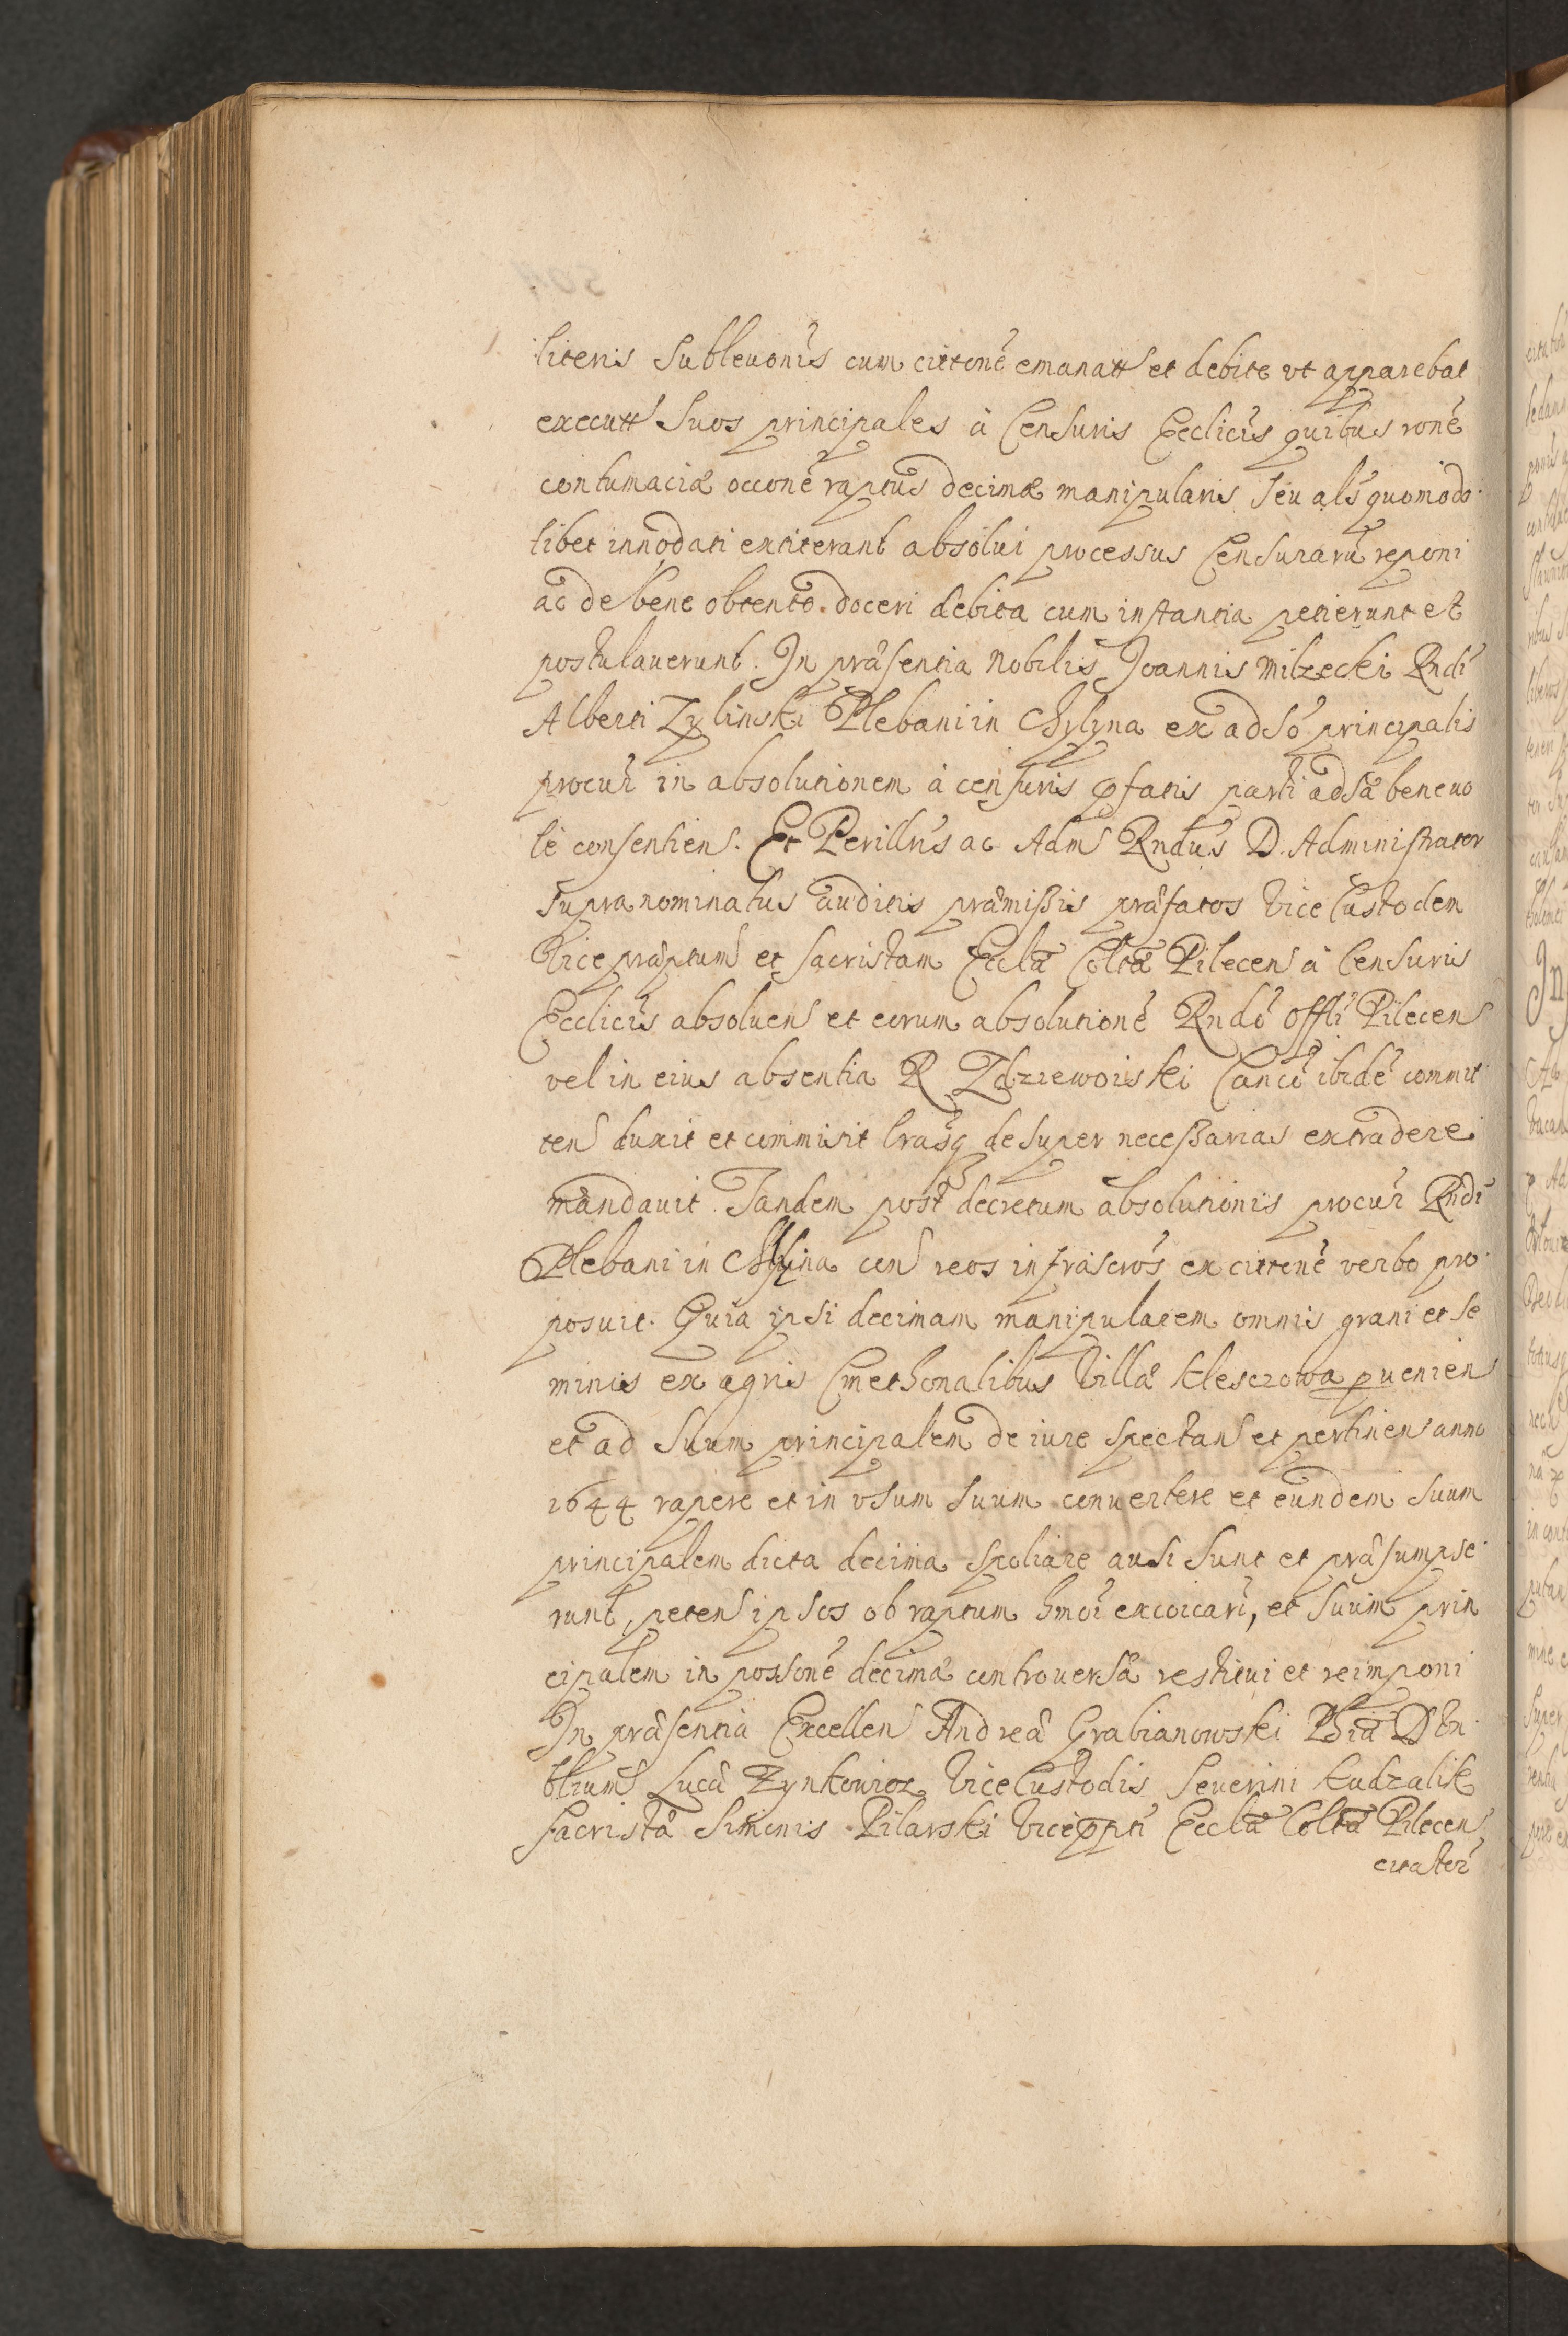 literis Subleuonis cum cittoné emanatt et debite vt apparebat
executt Suos principales à Censuris Eccliciś quibus roné
contumaciæ occoné raptus decimæ manipularis seu alś quomodo
libet innodati extiterant absolui processus Censurarũ reponi
ac de bene obtento doceri debita cum instantia petierunt et
postulauerunt. In præsentia Nobilis Joannis Milzecki Rndi
Alberti Zylinski Plebani in Chylyna ex adsó principalis
procur in absolutionem à censuris pfatis parti adsæ beneuo
lè consentien. Et Perillris ac Adm Rndus D. Administrator
supranominatus auditis præmißis præfatos ViceCustodem
Vice præptum et sacristam Ecclæ Coltæ Pilecen à Censuris
Eccliciś absoluen et eorum absolutioné Rndo Offli Pilecen
vel in eius absentia R Zdziewoiski Canco ibidé commit
ten duxit et commisit lrasq desuper neceßarias extradere
mandauit. Tandem post decretum absolutionis procur Rndi
Plebani in Chylina con reos infrascros ex cittoné verbo pro
posuit. Quia ipsi decimam manipularem omnis grani et se
minis ex agris Cmethonalibus Villæ Klesczowa puenien
et ad Suum principalem de iure spectan et pertinen anno
1644 rapere et in vsum suum conuertere et eundem suum
principalem dicta decima spoliare ausi sunt et præsumpse
runt, peten ipsos ob raptum hmoi excoicari, et suum prin
cipalem in possoné decimæ controuersæ restitui et reimponi
In præsentia Excellen Andreæ Grabianowski Phiæ D
Lucæ Zynkowicz ViceCustodis Seuerini Kudzalik
sacristæ Simonis Pilarski Vicepptí Ecclæ Coltæ Pilecen
citator